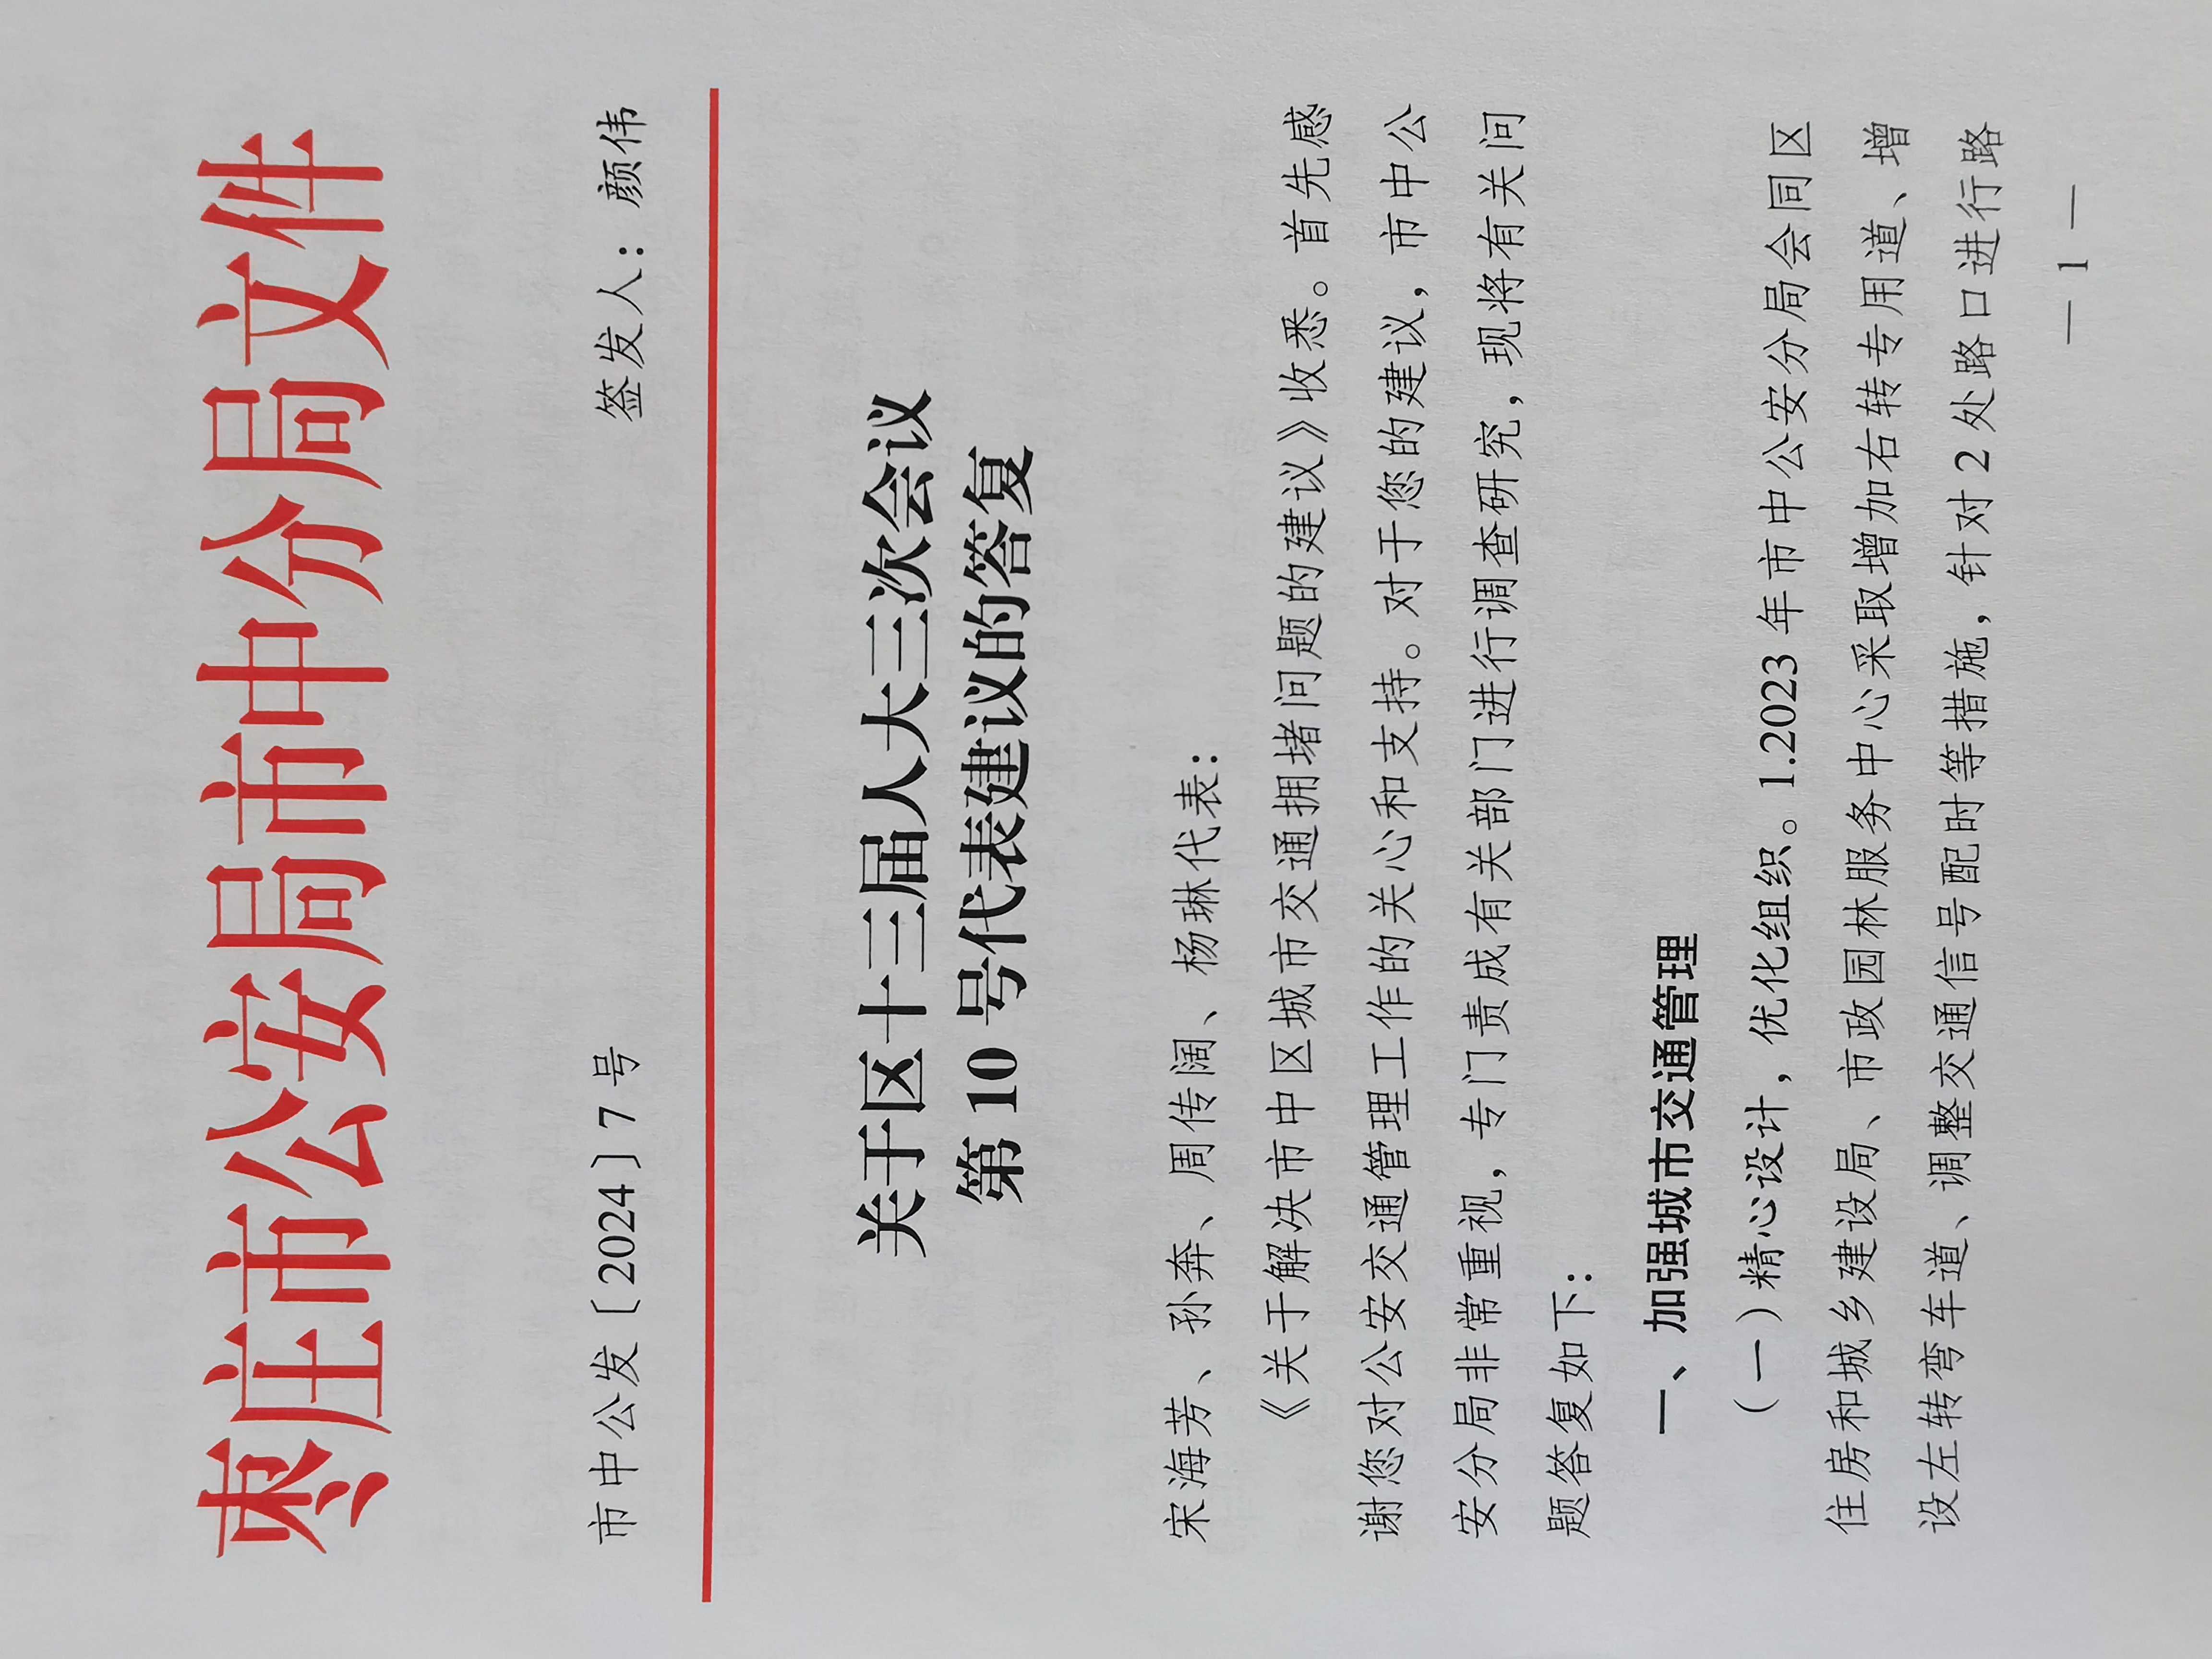 枣庄市公安局市中分局文件
市中公发〔2024〕7号 签发人：颜伟
关于区十三届人大三次会议
第10号代表建议的答复
宋海芳、孙奔、周传阔、杨琳代表：
《关于解决市中区城市交通拥堵问题的建议》收悉。首先感
谢您对公安交通管理工作的关心和支持。对于您的建议，市中公
安分局非常重视，专门责成有关部门进行调查研究，现将有关问
题答复如下：
一、加强城市交通管理
（一）精心设计，优化组织。1.2023年市中公安分局会同区
住房和城乡建设局、市政园林服务中心采取增加右转专用道、增
设左转弯车道、调整交通信号配时等措施，针对2处路口进行路
— 1 —